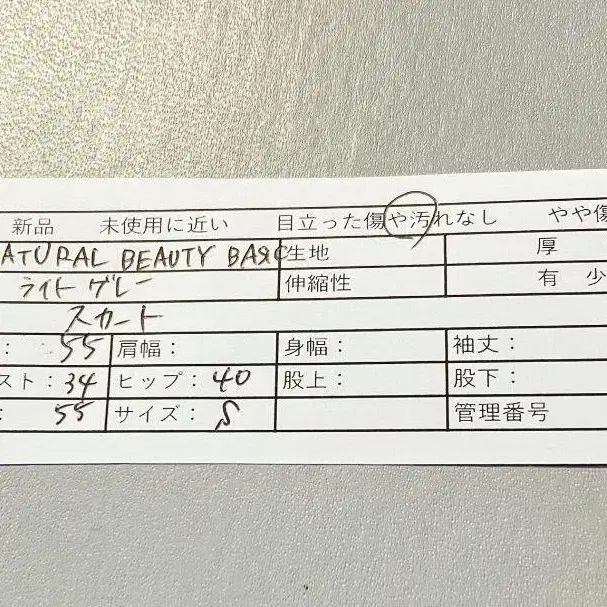 新品 未使用に近い 目立った傷や汚れなし やや傷
ATURAL BEAUTY BASIC 生地 厚
ライトグレー 伸縮性 有 少
スカート
: 55 肩幅: 身幅: 袖丈:
スト: 34 ヒップ: 40 股上: 股下:
: 55 サイズ: S 管理番号